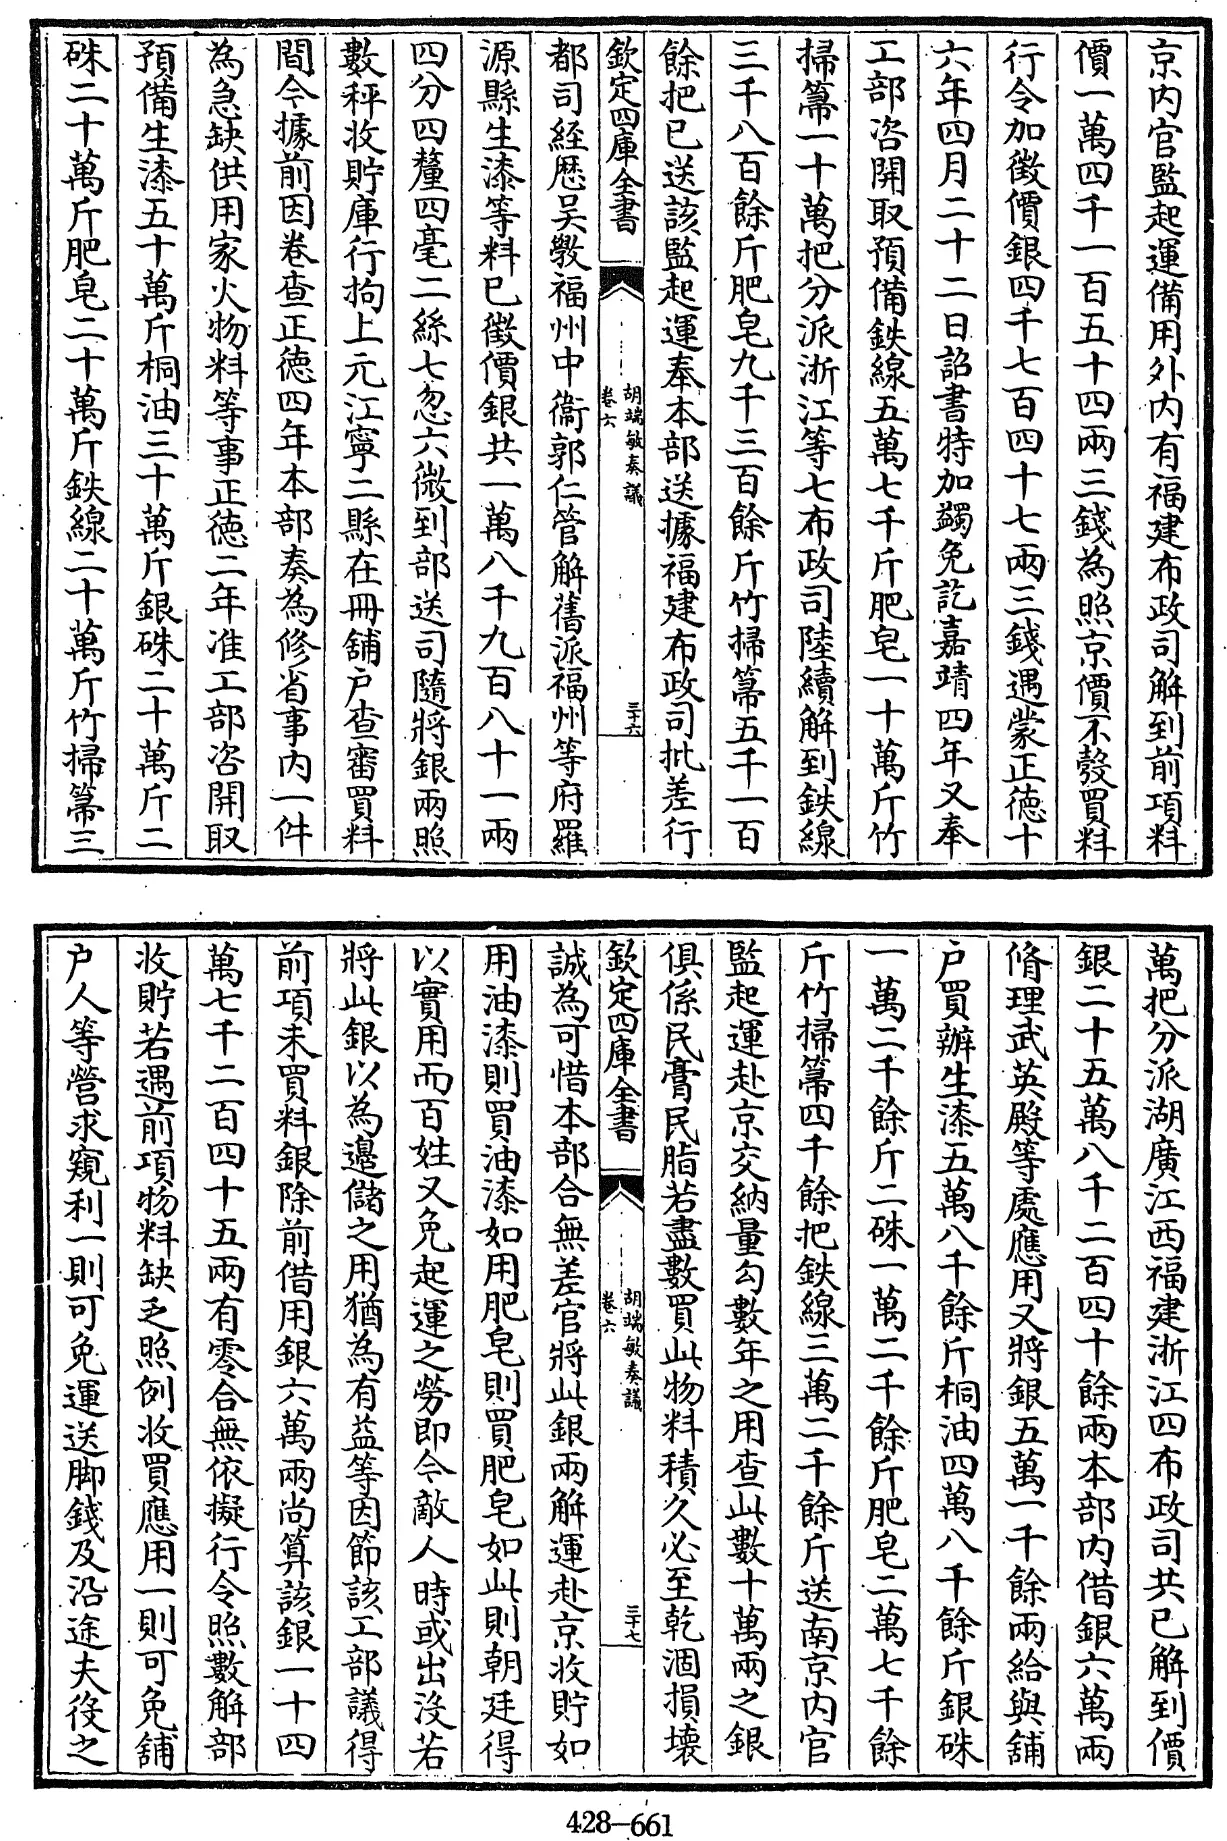 京内官監起運備用外内有福建布政司解到前項料
價一萬四千一百五十四兩三錢為照京價不彀買料
行令加徵價銀四千七百四十七兩三錢遇蒙正德十
六年四月二十二日詔書特加蠲免訖嘉靖四年又奉
工部咨開取預備鉄線五萬七千斤肥皂一十萬斤竹
掃箒一十萬把分派浙江等七布政司陸續解到鉄線
三千八百餘斤肥皂九千三百餘斤竹掃箒五千一百
餘把已送該監起運奉本部送據福建布政司批差行
欽定四庫全書
胡端敏奏議
卷六
三十六
都司経歴吴斆福州中衞郭仁管解舊派福州等府羅
源縣生漆等料已徵價銀共一萬八千九百八十一兩
四分四釐四毫二絲七忽六微到部送司隨將銀兩照
數秤收貯庫行拘上元江寧二縣在冊舖户查審買料
間今據前因卷查正德四年本部奏為修省事内一件
為急缺供用家火物料等事正德二年准工部咨開取
預備生漆五十萬斤桐油三十萬斤銀硃二十萬斤二
硃二十萬斤肥皂二十萬斤鉄線二十萬斤竹掃箒三
萬把分派湖廣江西福建浙江四布政司共已解到價
銀二十五萬八千二百四十餘兩本部内借銀六萬兩
脩理武英殿等處應用又將銀五萬一千餘兩給與舖
户買辦生漆五萬八千餘斤桐油四萬八千餘斤銀硃
一萬二千餘斤二硃一萬二千餘斤肥皂二萬七千餘
斤竹掃箒四千餘把鉄線三萬二千餘斤送南京内官
監起運赴京交納量勾數年之用查此數十萬兩之銀
俱係民膏民脂若盡數買此物料積久必至乾涸損壞
欽定四庫全書
胡端敏奏議
卷六
三十七
誠為可惜本部合無差官將此銀兩解運赴京收貯如
用油漆則買油漆如用肥皂則買肥皂如此則朝廷得
以實用而百姓又免起運之勞即今敵人時或出沒若
將此銀以為邊儲之用猶為有益等因節該工部議得
前項未買料銀除前借用銀六萬兩尚算該銀一十四
萬七千二百四十五兩有零合無依擬行令照數解部
收貯若遇前項物料缺乏照例收買應用一則可免舖
户人等營求窺利一則可免運送脚錢及沿途夫役之
428-661